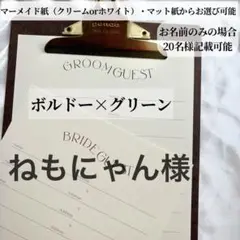 マーメイド紙（クリームorホワイト）・マット紙からお選び可能
お名前のみの場合
20名様記載可能
GROOM GUEST
ボルドー×グリーン
ねもにゃん様
BRIDE GUEST